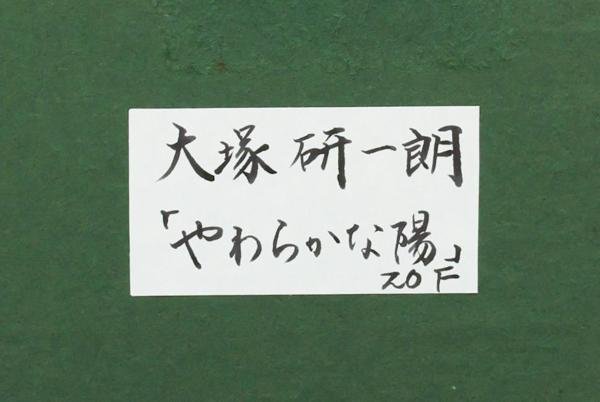 大塚 研一朗
「やわらかな陽」
20F